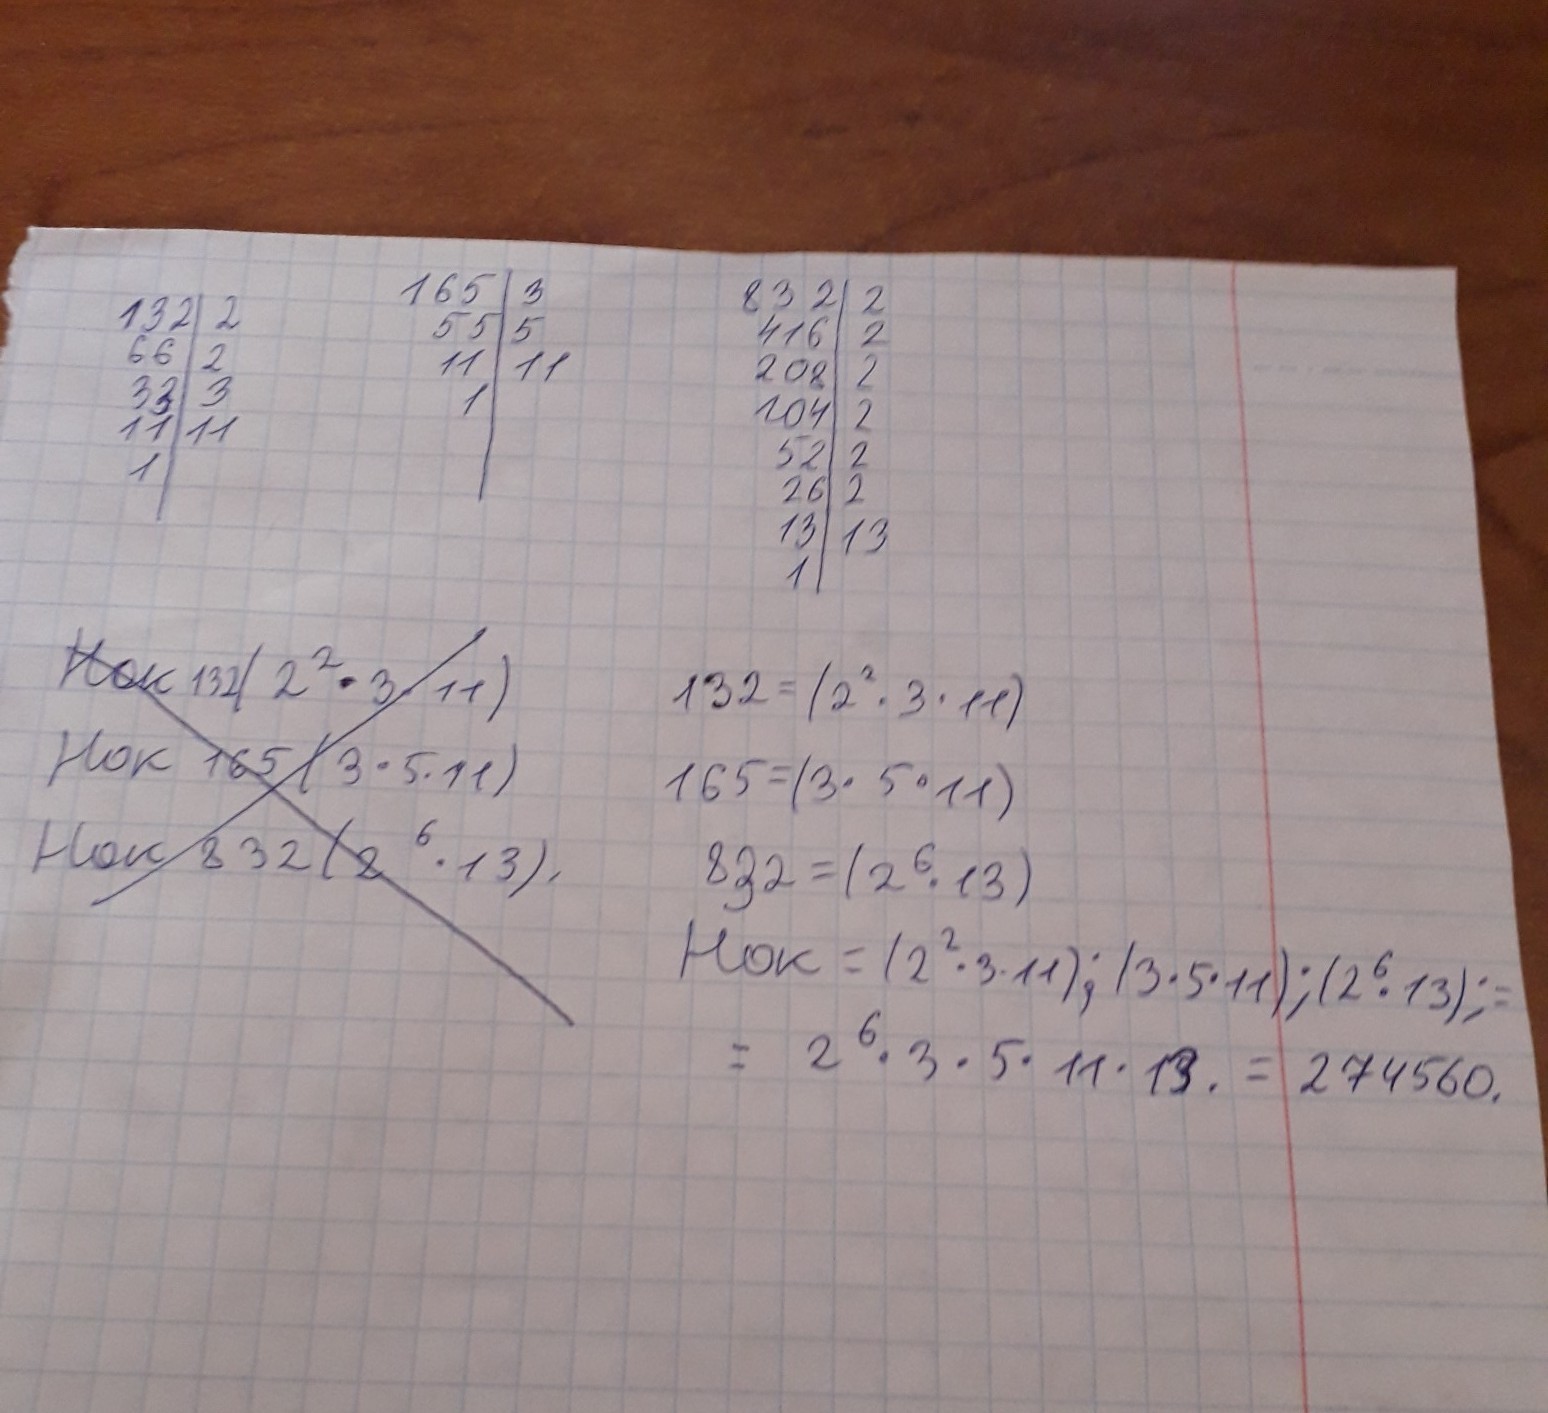 132 | 2
66 | 2
33 | 3
11 | 11
1
165 | 3
55 | 5
11 | 11
1
832 | 2
416 | 2
208 | 2
104 | 2
52 | 2
26 | 2
13 | 13
1
Нок 132(2²·3·11)
Нок 165(3·5·11)
Нок 832(2⁶·13),
132=(2²·3·11)
165=(3·5·11)
832=(2⁶·13)
Нок=(2²·3·11);(3·5·11);(2⁶·13);=
= 2⁶·3·5·11·13.=274560.